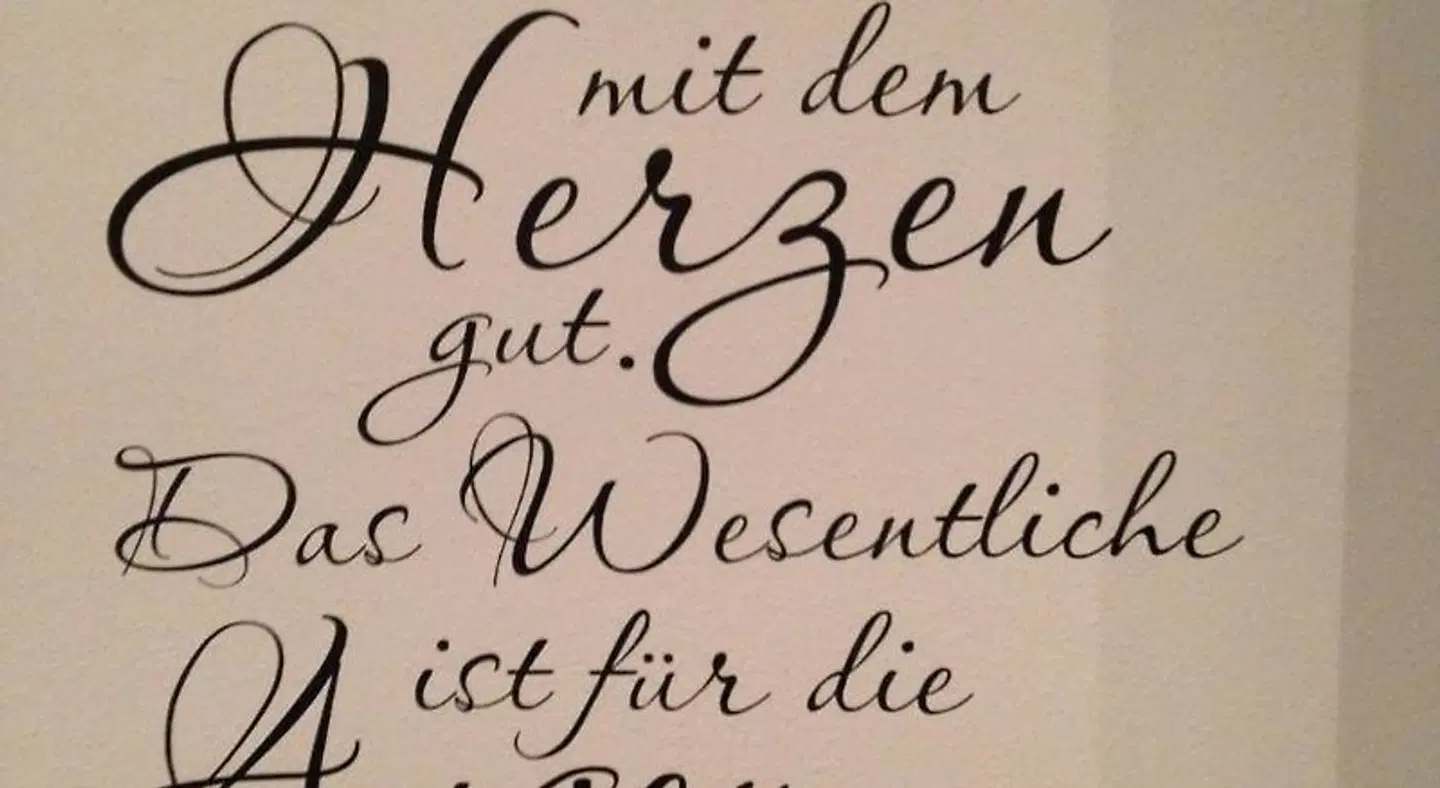 mit dem
Herzen
gut.
Das Wesentliche
ist für die